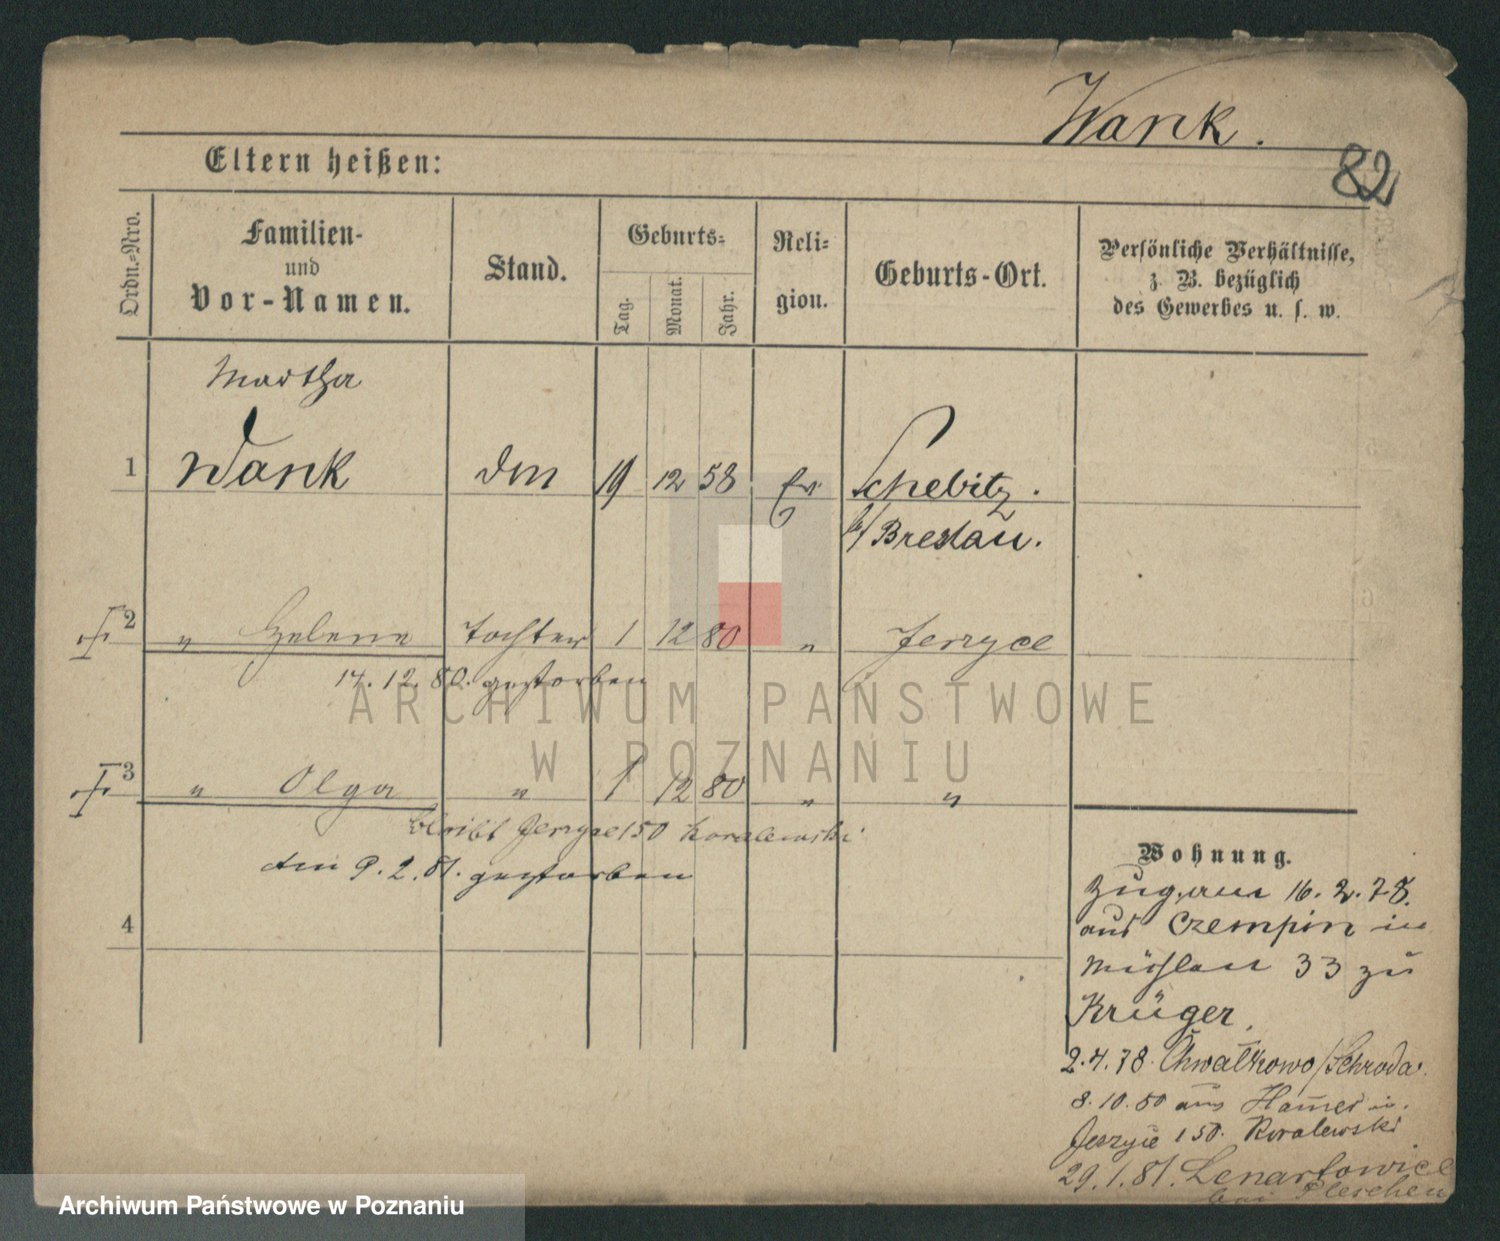 Wank.
82
Eltern heißen:
Ordn.-Nro.
Familien-
und
Vor-Namen.
Stand.
Geburts-
Tag.
Monat.
Jahr.
Reli-
gion.
Geburts-Ort.
Persönliche Verhältnisse,
z. B. bezüglich
des Gewerbes u. s. w.
Martha
1 Wank 19 12 58 Ev Schebitz.
b/ Breslau.
2 " Helene Tochter 1 12 80 " Jerzyce
17. 12. 80. gestorben
3 " Olga " 1 12 80 " "
bleibt Jerzyce 150 Koralewski
Am 9. 2. 81. gestorben
4
Wohnung.
Zug. am 16. 2. 78.
aus Czempin in
Mühlen 33 zu
Krüger.
2. 4. 78. Chwalkowo/Schroda.
8. 10. 80 aus in
Jerzyce 150. Koralewski
29. 1. 81. Lenartowice
bei Pleschen
ARCHIWUM PAŃSTWOWE
W POZNANIU
Archiwum Państwowe w Poznaniu